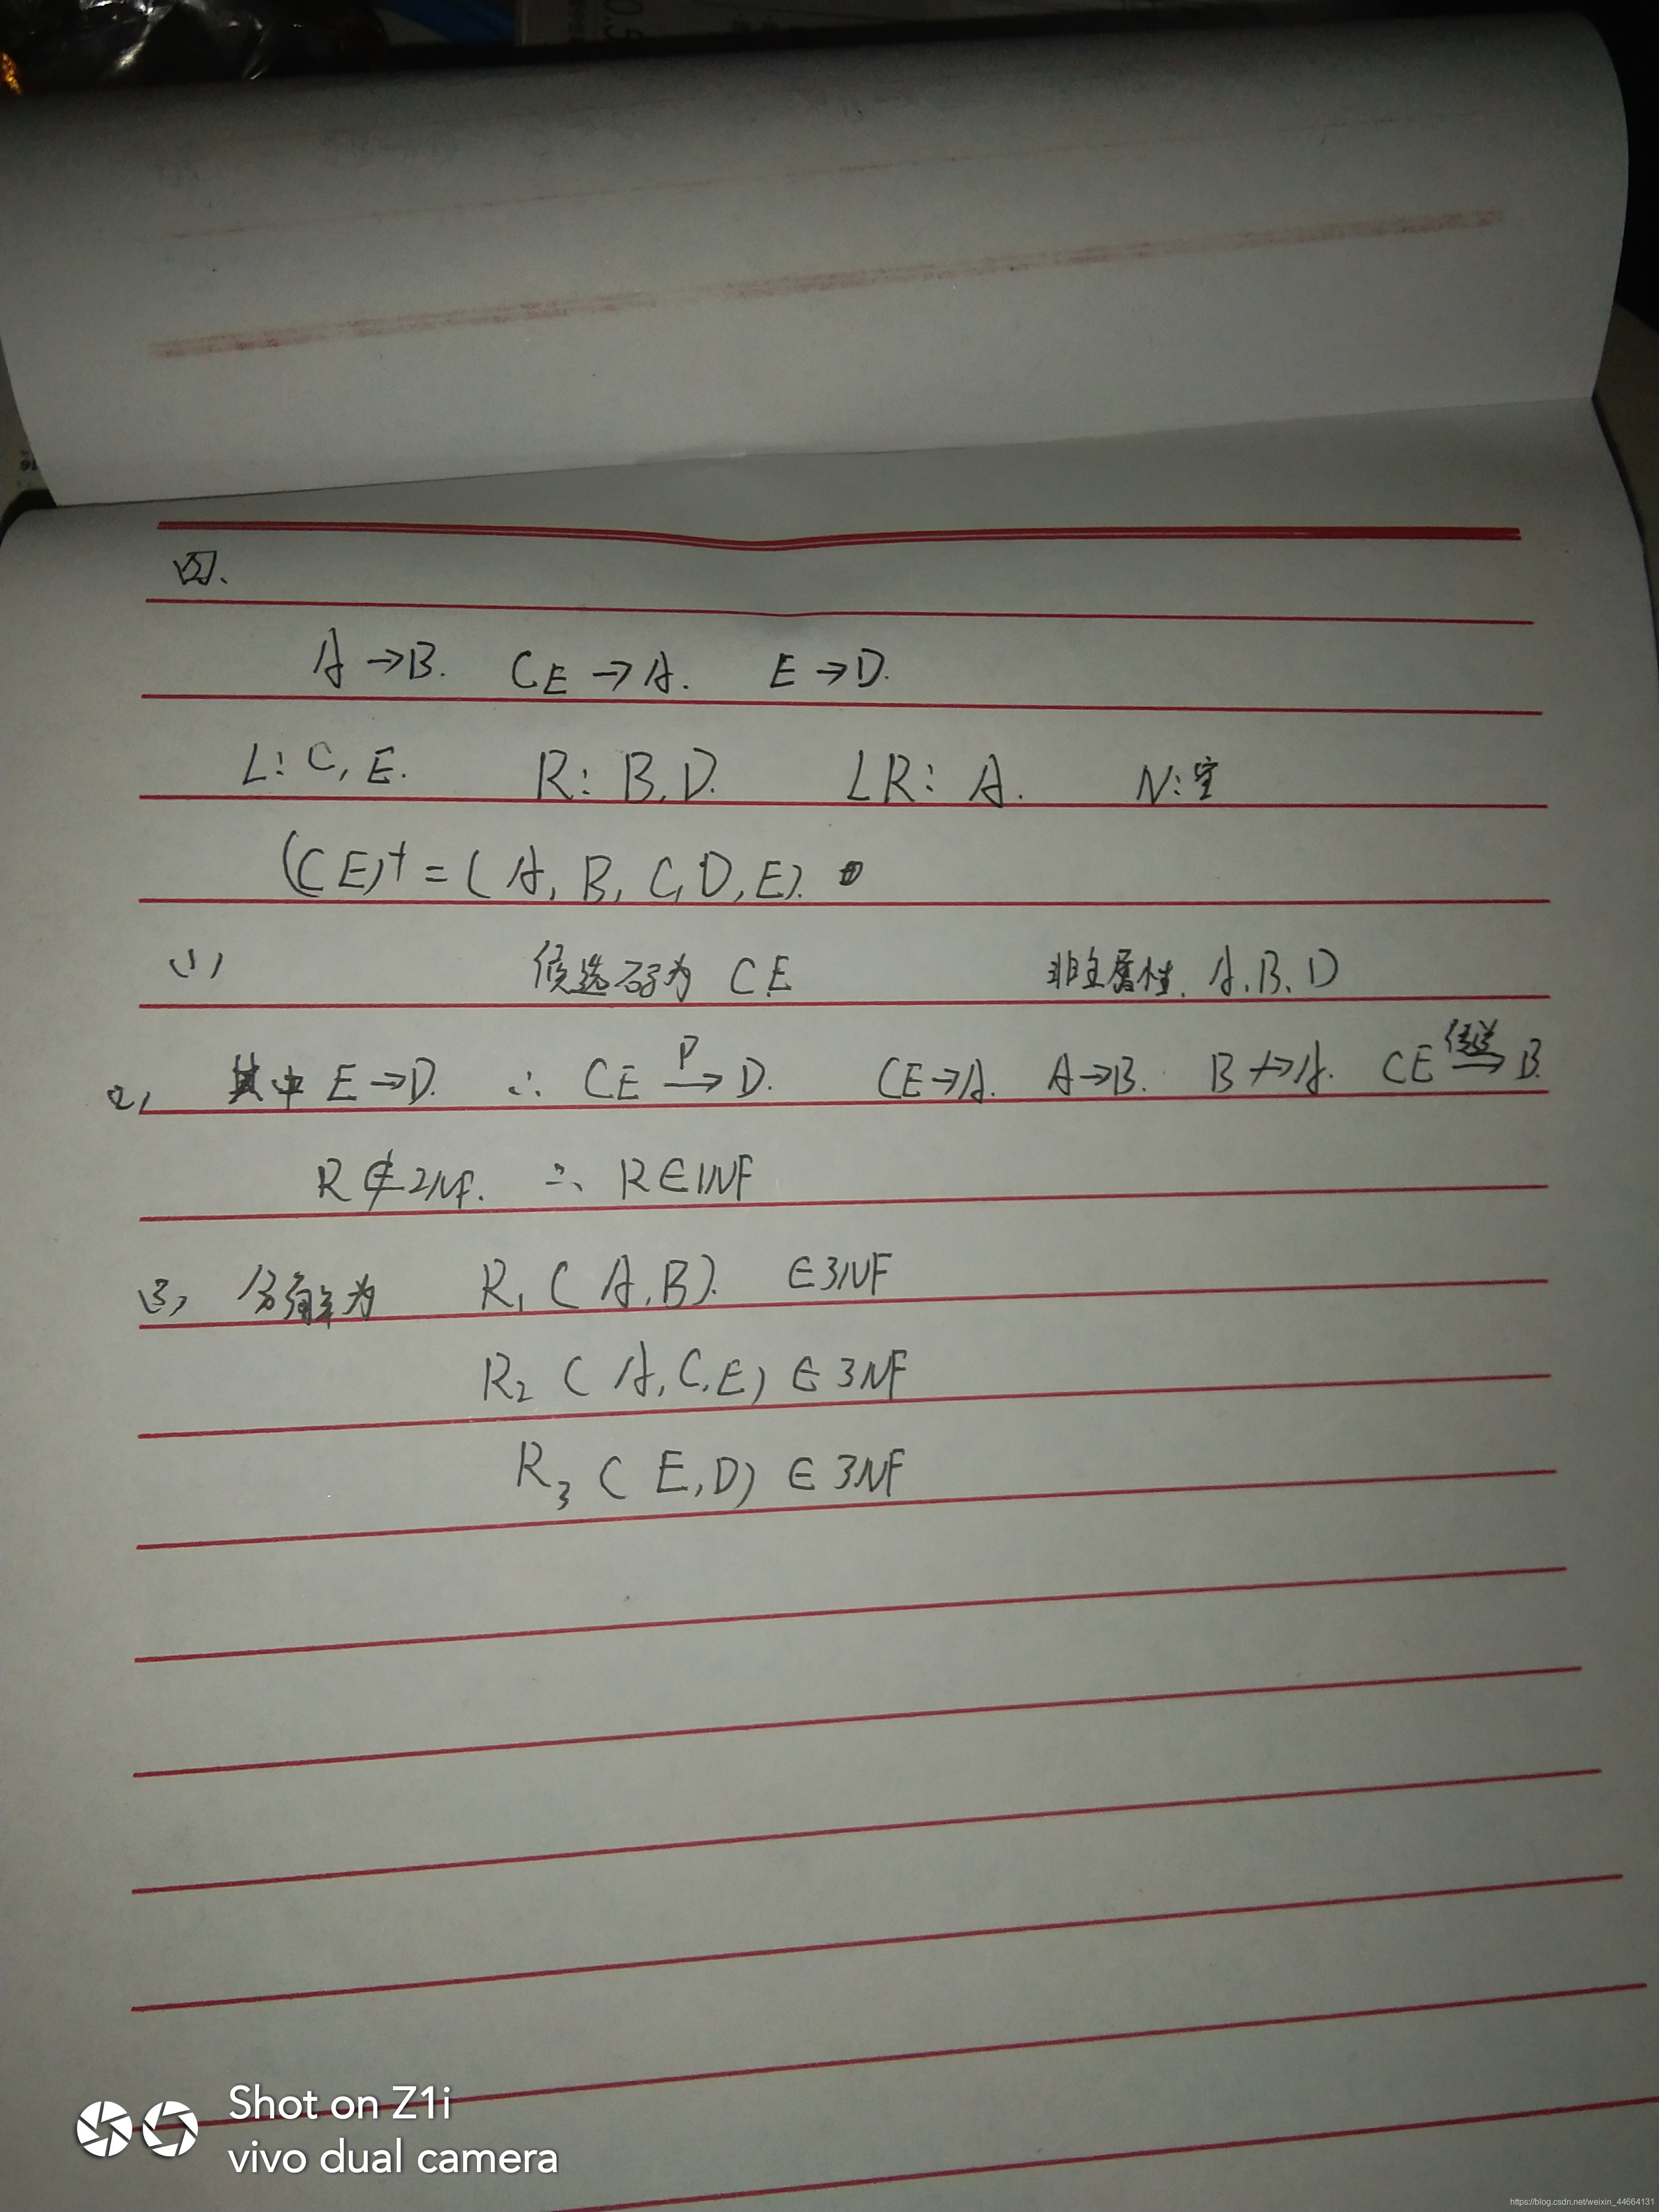 四、
A→B. CE→A. E→D.
L: C, E. R: B, D. LR: A. N: 空
(CE)⁺ = (A, B, C, D, E).
(1) 候选码为 CE 非主属性. A、B、D
2, 其中 E→D. ∴ CE P→ D. CE→A. A→B. B↛A. CE 传递→ B.
R∉2NF. ∴ R∈1NF
(3) 分解为 R₁(A, B). ∈3NF
R₂(A, C, E) ∈3NF
R₃(E, D) ∈3NF
Shot on Z1i
vivo dual camera
https://blog.csdn.net/weixin_44664131